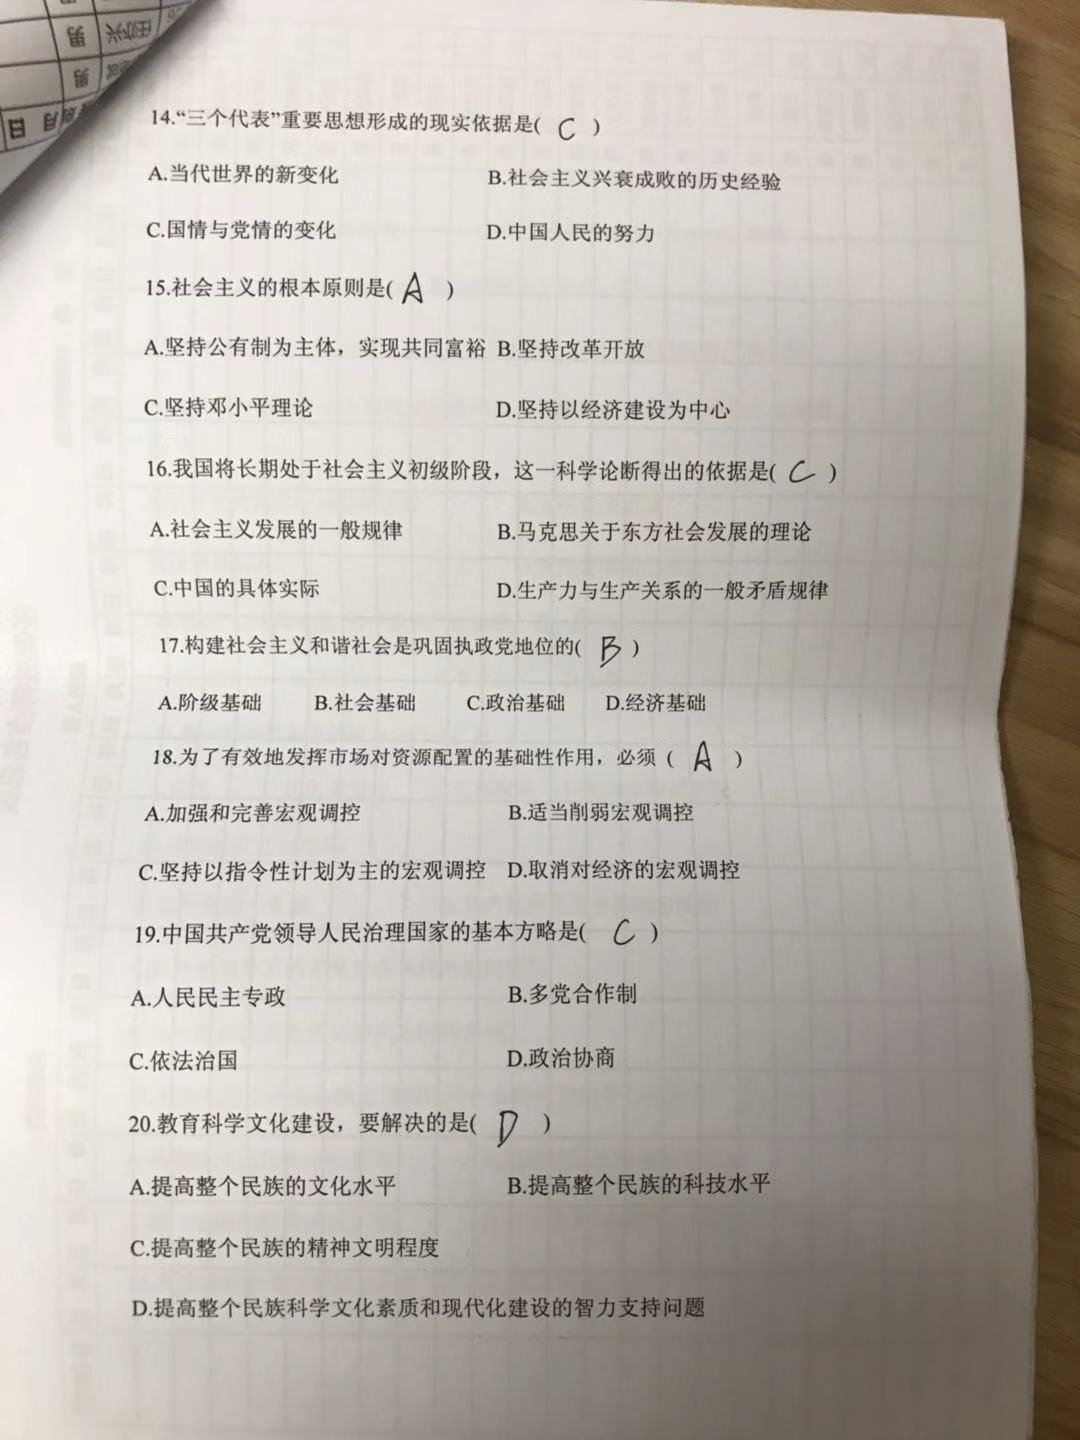 男
男
月
日
14.“三个代表”重要思想形成的现实依据是( C )
A.当代世界的新变化 B.社会主义兴衰成败的历史经验
C.国情与党情的变化 D.中国人民的努力
15.社会主义的根本原则是( A )
A.坚持公有制为主体，实现共同富裕 B.坚持改革开放
C.坚持邓小平理论 D.坚持以经济建设为中心
16.我国将长期处于社会主义初级阶段，这一科学论断得出的依据是( C )
A.社会主义发展的一般规律 B.马克思关于东方社会发展的理论
C.中国的具体实际 D.生产力与生产关系的一般矛盾规律
17.构建社会主义和谐社会是巩固执政党地位的( B )
A.阶级基础 B.社会基础 C.政治基础 D.经济基础
18.为了有效地发挥市场对资源配置的基础性作用，必须 ( A )
A.加强和完善宏观调控 B.适当削弱宏观调控
C.坚持以指令性计划为主的宏观调控 D.取消对经济的宏观调控
19.中国共产党领导人民治理国家的基本方略是( C )
A.人民民主专政 B.多党合作制
C.依法治国 D.政治协商
20.教育科学文化建设，要解决的是( D )
A.提高整个民族的文化水平 B.提高整个民族的科技水平
C.提高整个民族的精神文明程度
D.提高整个民族科学文化素质和现代化建设的智力支持问题